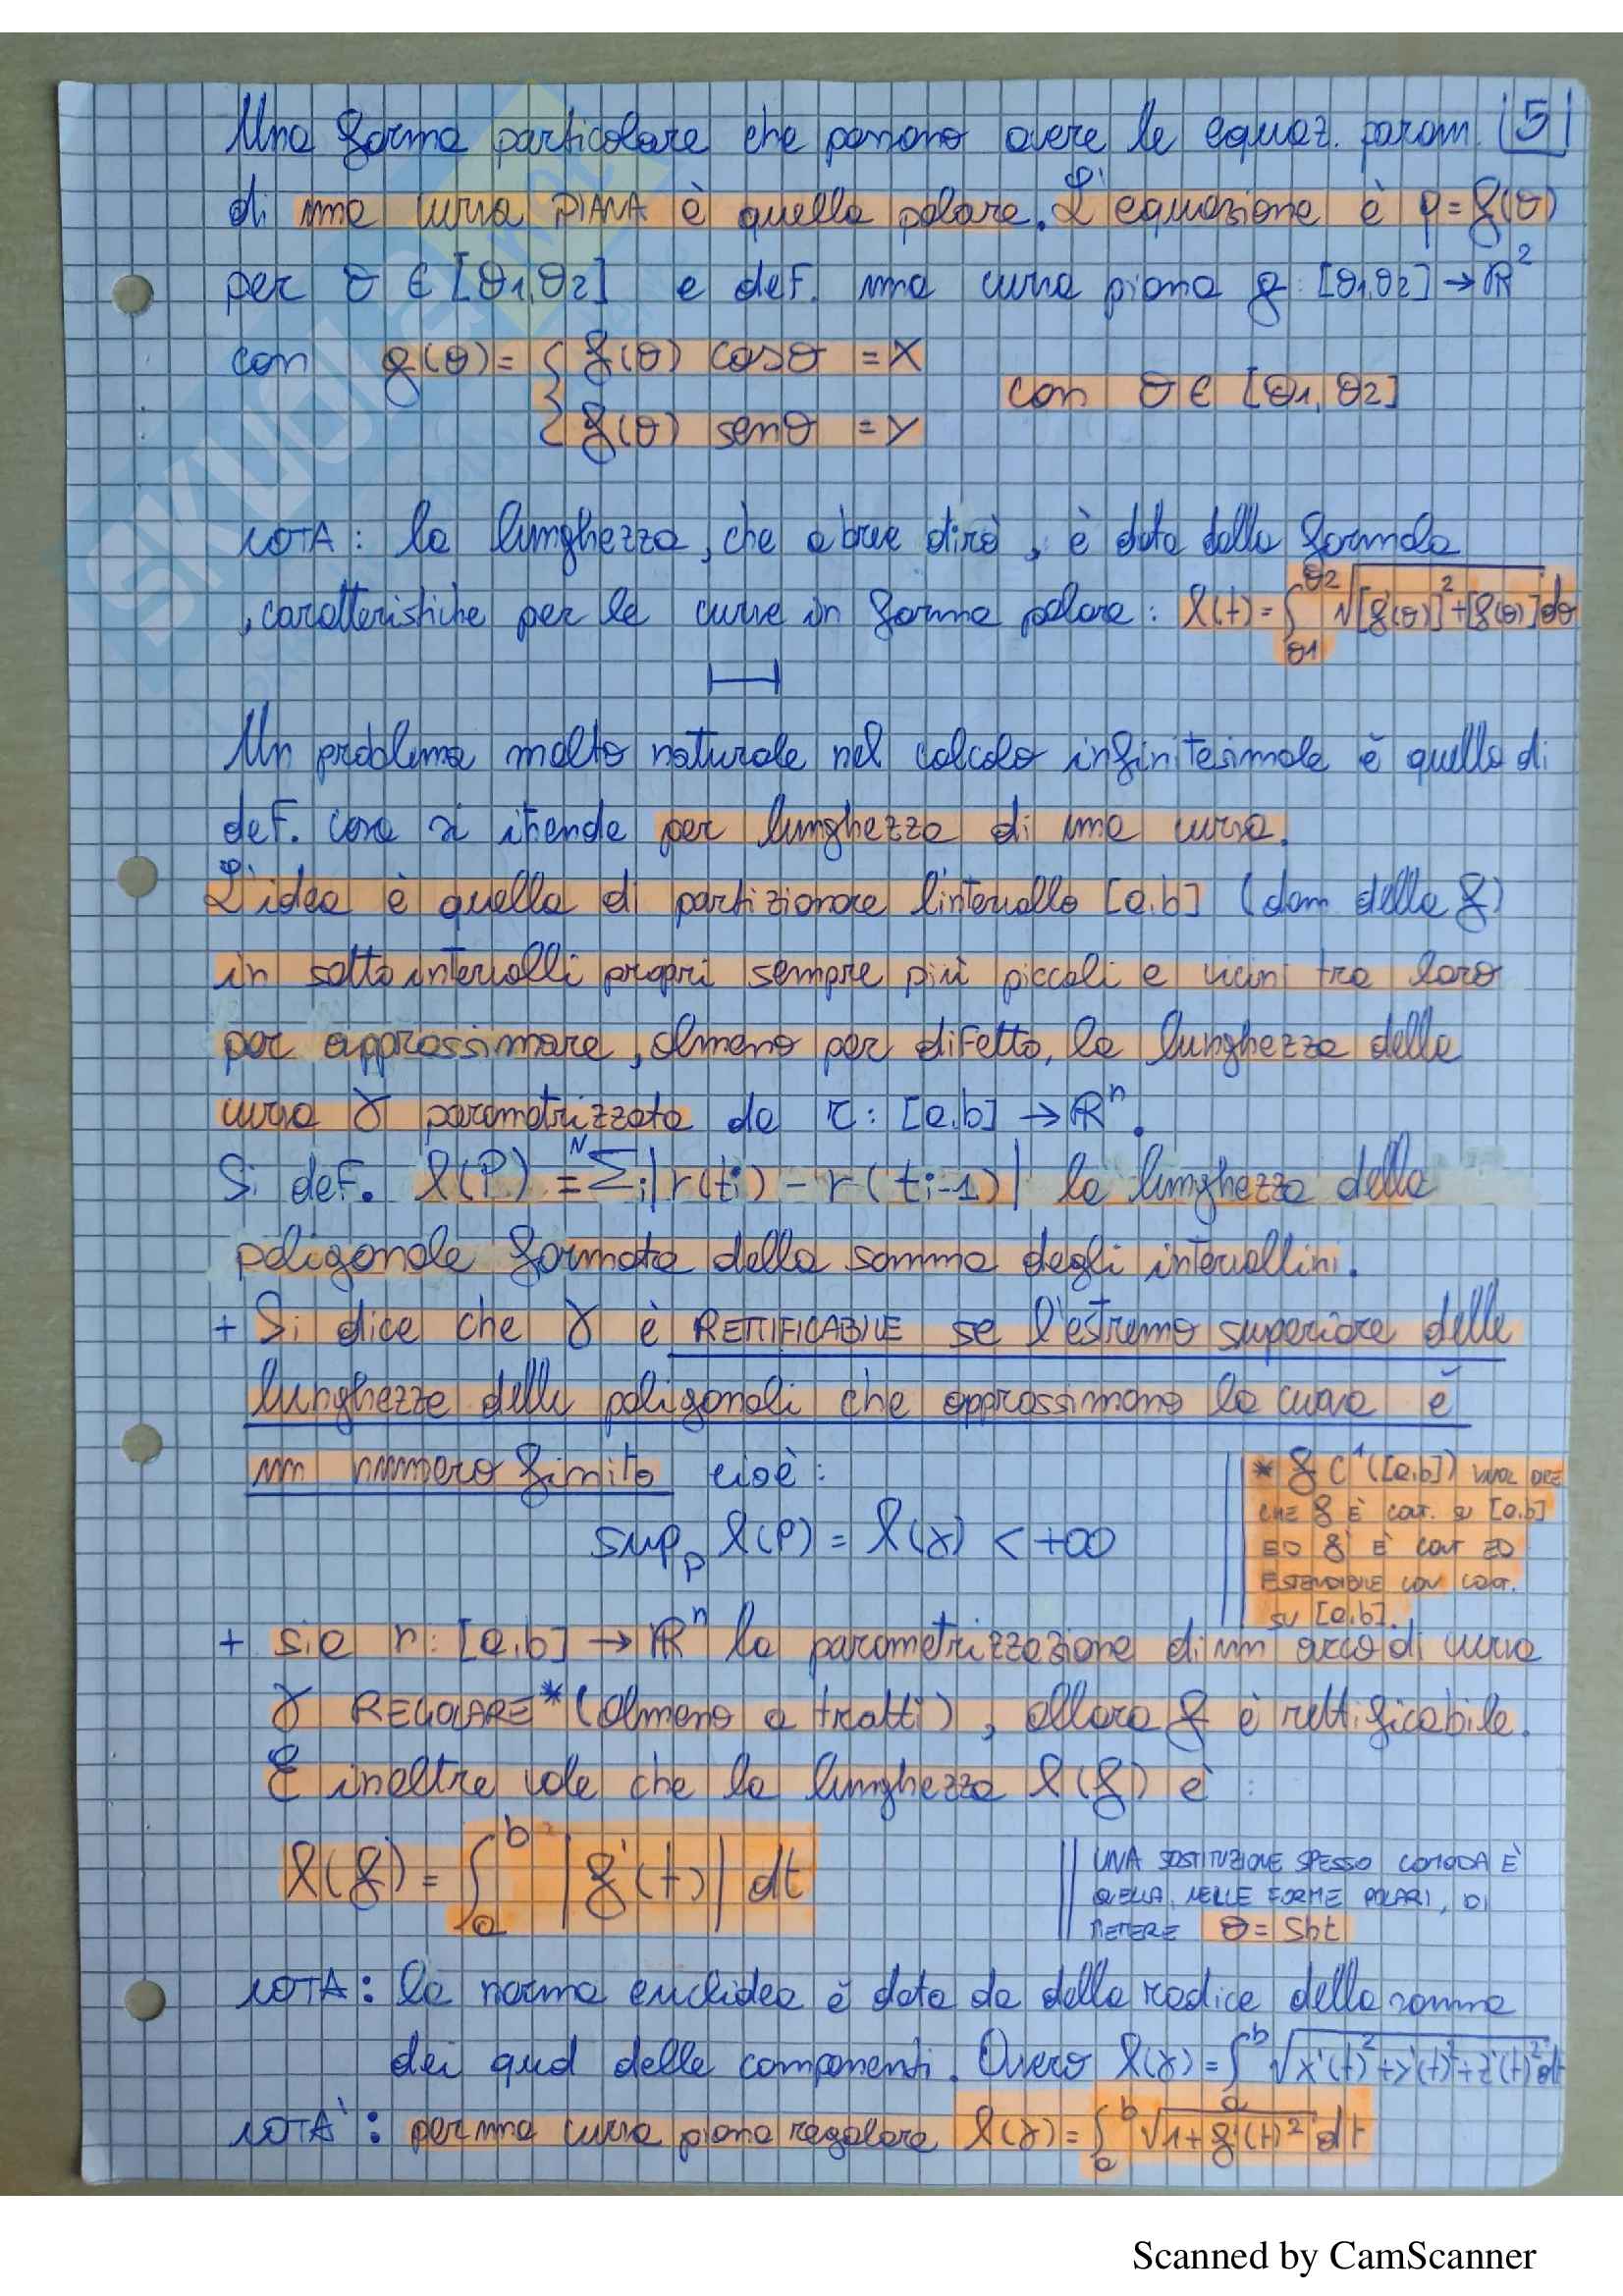 Una forma particolare che possono avere le equaz. param. 5
di una curva PIANA è quella polare. L'equazione è ρ = f(θ)
per θ ∈ [θ1,θ2] e def. una curva piana f: [θ1,θ2] → ℝ²
con f(θ) = { f(θ) cosθ = x
{ f(θ) senθ = y
con θ ∈ [θ1, θ2]
NOTA: la lunghezza, che a breve dirò, è data dalla formula
, caratteristiche per le curve in forma polare: l(t) = ∫θ1^θ2 √[f'(θ)]²+[f(θ)] dθ
Un problema molto naturale nel calcolo infinitesimale è quello di
def. cosa si itende per lunghezza di una curva.
L'idea è quella di partizionare l'intervallo [a,b] (dom della f)
in sotto intervalli propri sempre più piccoli e vicini tra loro
per approssimare, almeno per difetto, la lunghezza della
curva γ parametrizzata da r: [a,b] → ℝⁿ.
Si def. l(P) = ᴺΣi |r(ti) - r(ti-1)| la lunghezza della
poligonale formata dalla somma degli intervallini.
+ Si dice che γ è RETTIFICABILE se l'estremo superiore delle
lunghezze delle poligonali che approssimano la curva è
un numero finito cioè:
sup_P l(P) = l(γ) < +∞
* f C¹([a,b]) VUOL DIRE
CHE f È CONT. SU [a,b]
ED f' È CONT ED
ESTENDIBILE CON CONT.
SU [a,b].
+ sia r: [a,b] → ℝⁿ la parametrizzazione di un arco di curva
γ REGOLARE* (almeno a tratti), allora f è rettificabile.
E inoltre vale che la lunghezza l(f) è:
l(f) = ∫a^b |f'(t)| dt
UNA SOSTITUZIONE SPESSO COMODA È
QUELLA, NELLE FORME POLARI, DI
METERE θ = Sht
NOTA: la norma euclidea è data da dalla radice della somma
dei quad delle componenti. Ovvero l(γ) = ∫a^b √x'(t)²+y'(t)²+z'(t)² dt
NOTA': per una curva piana regolare l(γ) = ∫a^b √1+f'(t)² dt
SKUOLA.net
Scanned by CamScanner